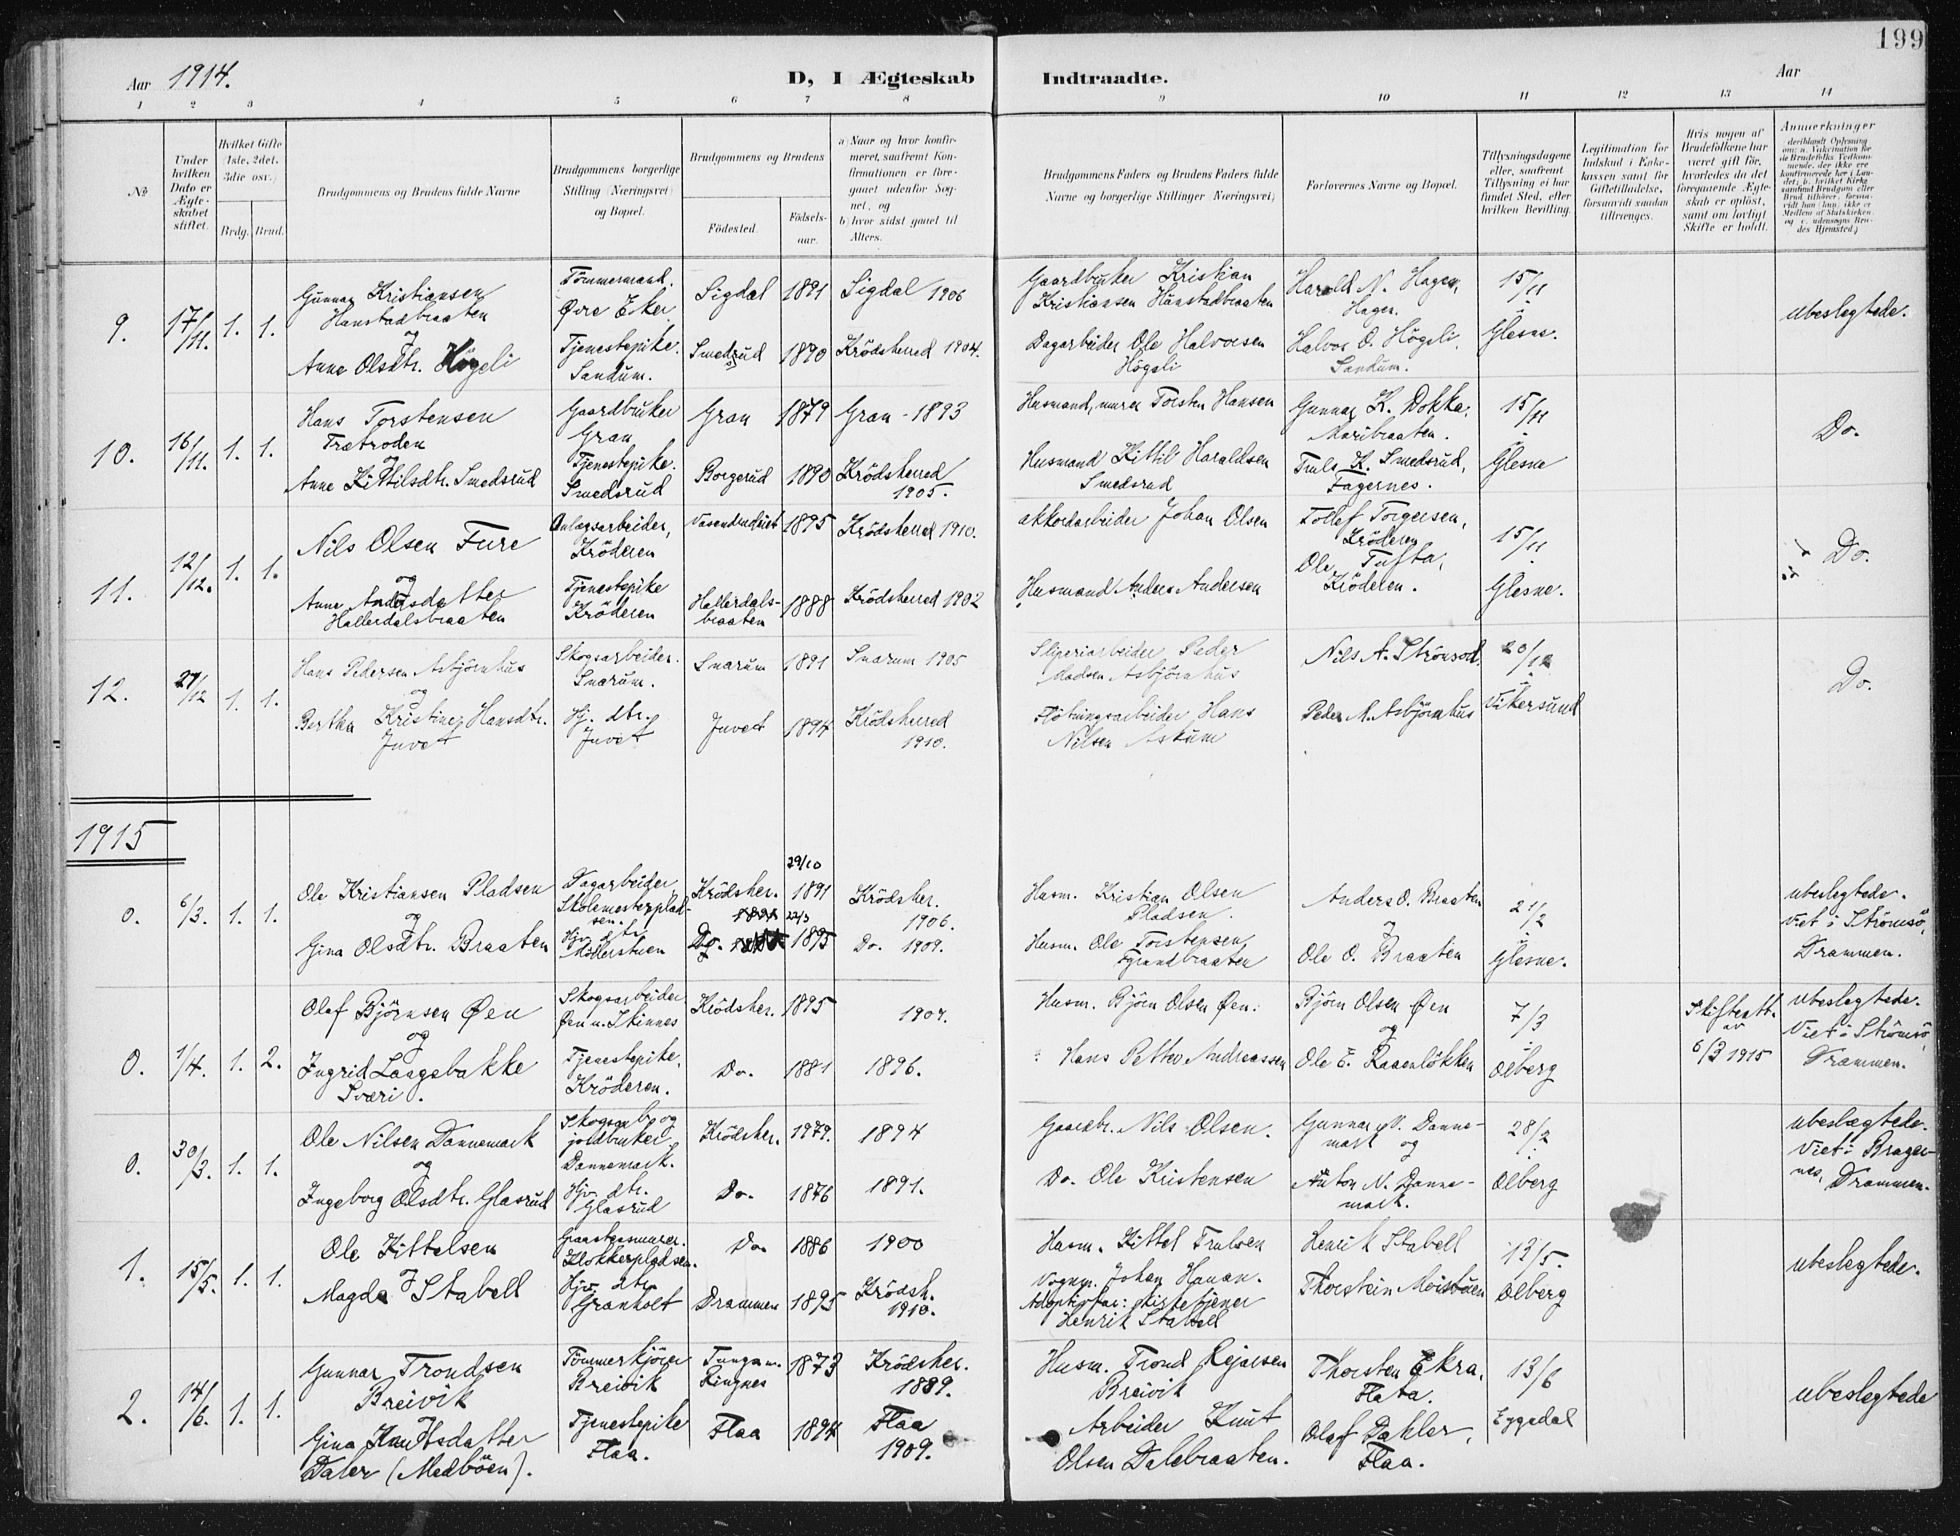 199
Aar 1914.
D, I Ægteskab Indtraadte.
Aar
1 2 3 4 5 6 7 8 9 10 11 12 13 14
No
Under hvilken Dato er Ægteskabet stiftet.
Hvilket Gifte (1ste, 2det, 3die osv.)
Brdg. Brud.
Brudgommens og Brudens fulde Navne
Brudgommens borgerlige Stilling (Næringsvei) og Bopæl.
Brudgommens og Brudens
Fødested. Fødselsaar.
a) Naar og hvor konfirmeret, saafremt Konfirmationen er foregaaet udenfor Sognet, og
b) hvor sidst gaaet til Alters.
Brudgommens Faders og Brudens Faders fulde Navne og borgerlige Stillinger (Næringsvei)
Forlovernes Navne og Bopæl.
Tillysningsdagene eller, saafremt Tillysning ei har fundet Sted, efter hvilken Bevilling.
Legitimation for Indskud i Enkekassen samt for Giftetilladelse, forsaavidt saadan tiltrænges.
Hvis nogen af Brudefolkene har været gift før, hvorledes da det foregaaende Ægteskab er opløst, samt om lovligt Skifte er holdt.
Anmerkninger
9. 17/11. 1. 1. Gunnar Kristiansen Hanstadbraaten og Tømmermand. Øvre Eker. Sigdal 1891 Sigdal 1906 Gaardbruker Kristian Kristiansen Hanstadbraaten Harald N. Hagen, Hagen. 15/11 ubeslegtede.
Anne Olsdtr. Högeli Tjenestepike. Sandum. Smedsrud 1890 Krödsherred 1904. Dagarbeider Ole Halvorsen Högeli Halvor O. Högeli, Sandum. Glesne.
10. 16/11. 1. 1. Hans Torstensen Trætroden og Gaardbruker Gran Gran 1879 Gran - 1893 Husmand, murer Torsten Hansen Gunnar K. Dokka, Maribraaten. 15/11 Do.
Anne Kittilsdtr. Smedsrud Tjenestepike. Smedsrud Borgerud 1890 Krödsherred 1905. Husmand Kittil Haraldsen Smedsrud Truls K. Smedsrud, Fagernes. Glesne
11. 12/12. 1. 1. Nils Olsen Fure og Anlægsarbeider, Kröderen 1895 Krödsherred 1910. akkordarbeider Johan Olsen Tollef Torgersen, Kröderen 15/11 Do.
Anne Andersdatter Hallerdalsbraaten Tjenestepike Kröderen Hallerdalsbraaten 1888 Krödsherred 1902 Husmand Anders Andersen Ole Tufta, Kröderen. Glesne.
12. 27/12 1. 1. Hans Pedersen Asbjörnhus og Skogsarbeider. Snarum. Snarum 1891 Snarum 1905 Sliperiarbeider Peder Madsen Asbjörnhus Nils A. Strömsod 20/12 Do.
Bertha Kristine Hansdtr. Juvet Hj. dtr. Juvet Juvet 1894 Krödsherred 1910. Flötningsarbeider Hans Nilsen Askum Peder M. Asbjörnhus Vikersund
1915
0. 6/3. 1. 1. Ole Kristiansen Pladsen og Dagarbeider Skolemesterpladsen. Krödsher. 29/10 1891 Krödsher. 1906. Husm. Kristian Olsen Pladsen. Anders O. Braaten og 21/2 ubeslegtede. Viet i Strömsö, Drammen.
Gina Olsdtr. Braaten Hjv. dtr. Möllerstuen Do. 22/3 1895 Do. 1909. Husm. Ole Torstensen Strandbraaten Ole O. Braaten Glesne.
0. 1/4. 1. 2. Olaf Björnsen Øen og Skogsarbeider Øen u. Skinnes Krödsher. 1895 1909. Husm. Björn Olsen Øen. Björn Olsen Øen og 7/3 Skifteatt. av 6/3 1915 ubeslegtede. Viet i Strömsö, Drammen.
Ingrid Laagebakke Sværi. Tjenestepike, Kröderen. Do. 1881 1896. Hans Petter Andreassen Ole E. Raaenlökken Olberg
0. 30/3. 1. 1. Ole Nilsen Dannemark og Skogsarb. og jordbruker Dannemark. Krödsher. 1979. 1894 Gaardbr. Nils Olsen. Gunnar O. Dannemark og 28/2 ubeslægtede. Viet i Bragernes, Drammen.
Ingeborg Olsdtr. Glasrud Hjv. dtr. Glasrud Do. 1876 1891. Do. Ole Kristensen Anton N. Dannemark. Olberg
1. 15/5. 1. 1. Ole Kittelsen Graastensmurer. Klokkerpladsen. Do. 1886 1900 Husm. Kittel Trulsen Henrik Stabell 13/5. ubeslegtede.
Magda J Stabell Hjv. dtr. Granholt Drammen 1895 Krödsh. 1910. Vognm. Johan Hanan. Adoptivfar: kirketjener Henrik Stabell Thorstein Moistuen Olberg
2. 14/6. 1. 1. Gunnar Trondsen Breivik Tömmerkjörer Breivik Ringnes 1873 Krödsher. 1889. Husm. Trond Rejarsen Breivik Thorsten Ekra, Flata. 13/6 ubeslegtede
Gina Knutsdatter Daler (Medböen). Tjenestepike Flaa. Flaa 1894 Flaa 1909. Arbeider Knut Olsen Dalebraaten. Olaf Dahler, Flaa. Eggedal